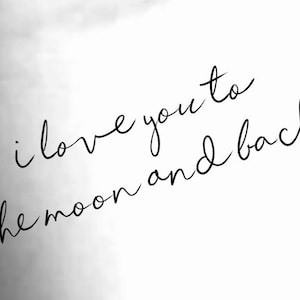 i love you to
he moon and bac